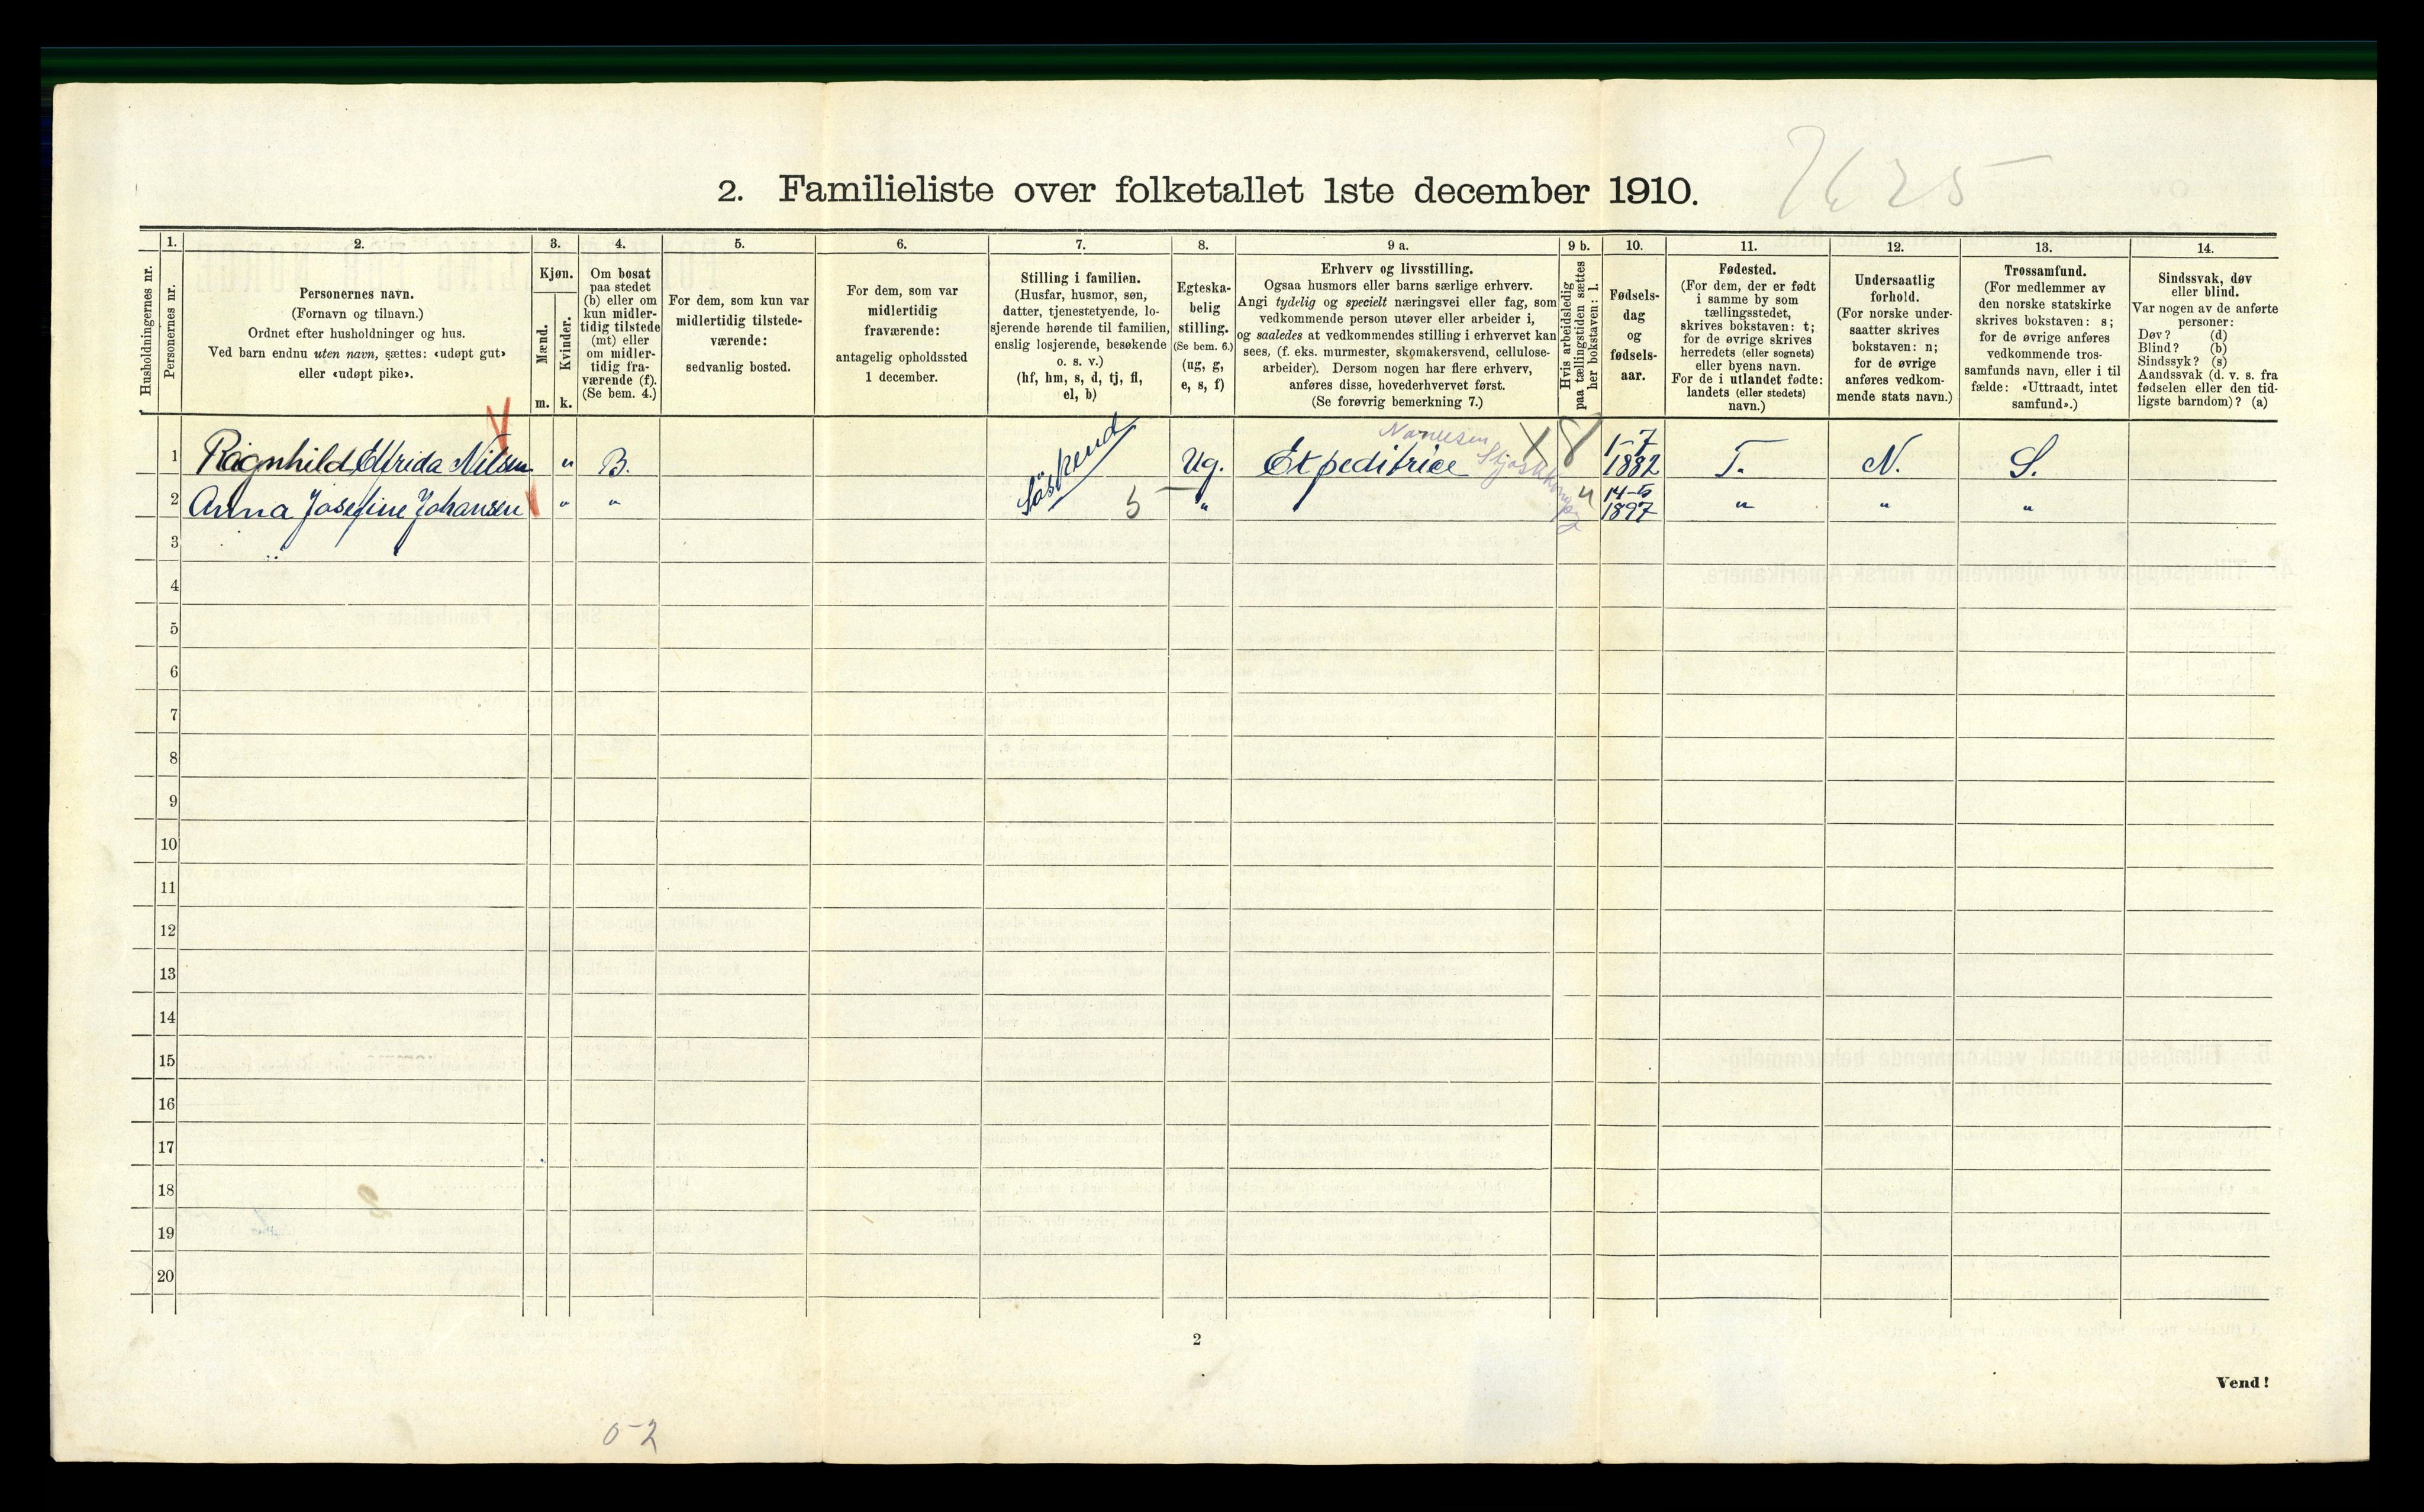 7625
2. Familieliste over folketallet 1ste december 1910.
Husholdningernes nr.
1.
Personernes nr.
2.
Personernes navn.
(Fornavn og tilnavn.)
Ordnet efter husholdninger og hus.
Ved barn endnu uten navn, sættes: «udøpt gut»
eller «udøpt pike».
3.
Kjøn.
Mænd.
Kvinder.
m.
k.
4.
Om bosat
paa stedet
(b) eller om
kun midler-
tidig tilstede
(mt) eller
om midler-
tidig fra-
værende (f).
(Se bem. 4.)
5.
For dem, som kun var
midlertidig tilstede-
værende:
sedvanlig bosted.
6.
For dem, som var
midlertidig
fraværende:
antagelig opholdssted
1 december.
7.
Stilling i familien.
(Husfar, husmor, søn,
datter, tjenestetyende, lo-
sjerende hørende til familien,
enslig losjerende, besøkende
o. s. v.)
(hf, hm, s, d, tj, fl,
el, b)
8.
Egteska-
belig
stilling.
(Se bem. 6.)
(ug, g,
e, s, f)
9 a.
Erhverv og livsstilling.
Ogsaa husmors eller barns særlige erhverv.
Angi tydelig og specielt næringsvei eller fag, som
vedkommende person utøver eller arbeider i,
og saaledes at vedkommendes stilling i erhvervet kan
sees, (f. eks. murmester, skomakersvend, cellulose-
arbeider). Dersom nogen har flere erhverv,
anføres disse, hovederhvervet først.
(Se forøvrig bemerkning 7.)
9 b.
Hvis arbeidsledig
paa tællingstiden sættes
her bokstaven: l.
10.
Fødsels-
dag
og
fødsels-
aar.
11.
Fødested.
(For dem, der er født
i samme by som
tællingsstedet,
skrives bokstaven: t;
for de øvrige skrives
herredets (eller sognets)
eller byens navn.
For de i utlandet fødte:
landets (eller stedets)
navn.)
12.
Undersaatlig
forhold.
(For norske under-
saatter skrives
bokstaven: n;
for de øvrige
anføres vedkom-
mende stats navn.)
13.
Trossamfund.
(For medlemmer av
den norske statskirke
skrives bokstaven: s;
for de øvrige anføres
vedkommende tros-
samfunds navn, eller i til
fælde: «Uttraadt, intet
samfund».)
14.
Sindssvak, døv
eller blind.
Var nogen av de anførte
personer:
Døv? (d)
Blind? (b)
Sindssyk? (s)
Aandssvak (d. v. s. fra
fødselen eller den tid-
ligste barndom)? (a)
1 Ragnhild Elfrida Nilsen " B. Søskend Ug. Expeditrice X8 1-7 1882 T. N. S.
2 Anna Josefine Johansen " " 5 " 4 14-5 1897 " " "
3
4
5
6
7
8
9
10
11
12
13
14
15
16
17
18
19
20
2
Vend!
0-2